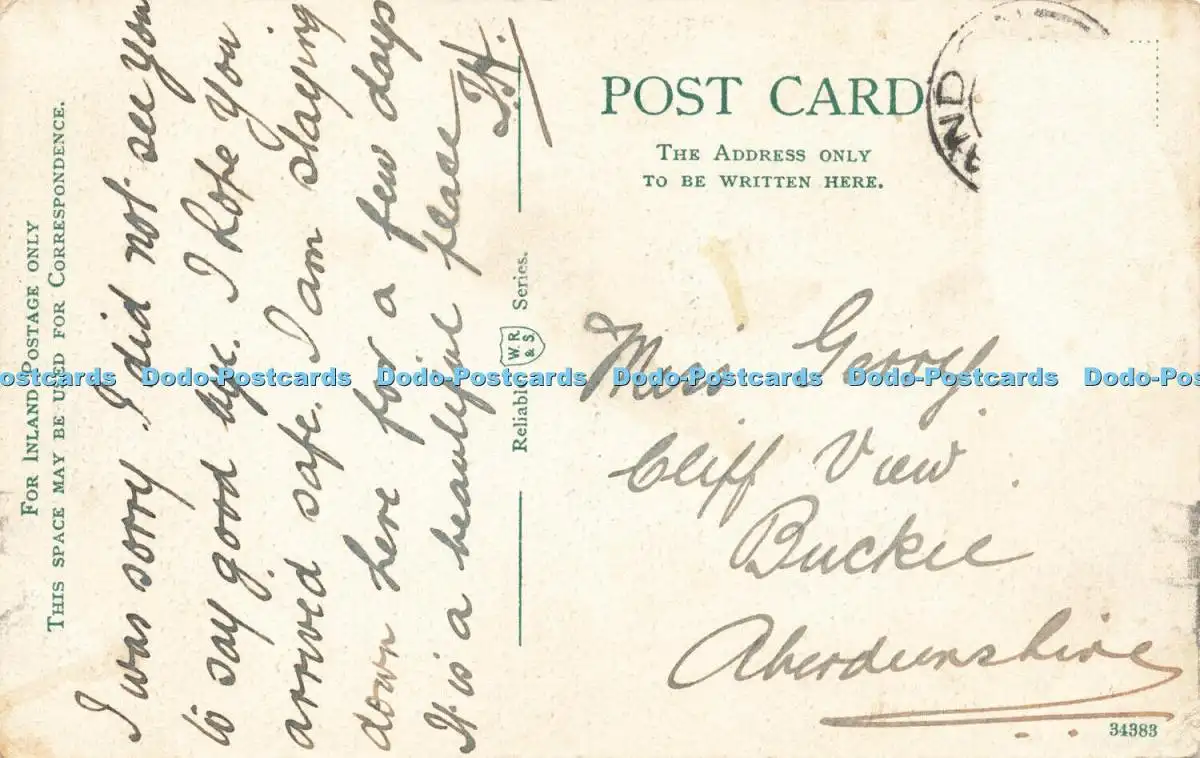 FOR INLAND POSTAGE ONLY
THIS SPACE MAY BE USED FOR CORRESPONDENCE.
I was sorry I did not see you
to say good bye. I hope you
arrived safe. I am staying
down here for a few days
It is a beautiful place
Reliable
W.R.
& S.
Series.
POST CARD
THE ADDRESS ONLY
TO BE WRITTEN HERE.
AND
Miss Georry
Cliff View.
Buckie
Aberdeenshire
34383
Dodo-Postcards Dodo-Postcards Dodo-Postcards Dodo-Postcards Dodo-Postcards